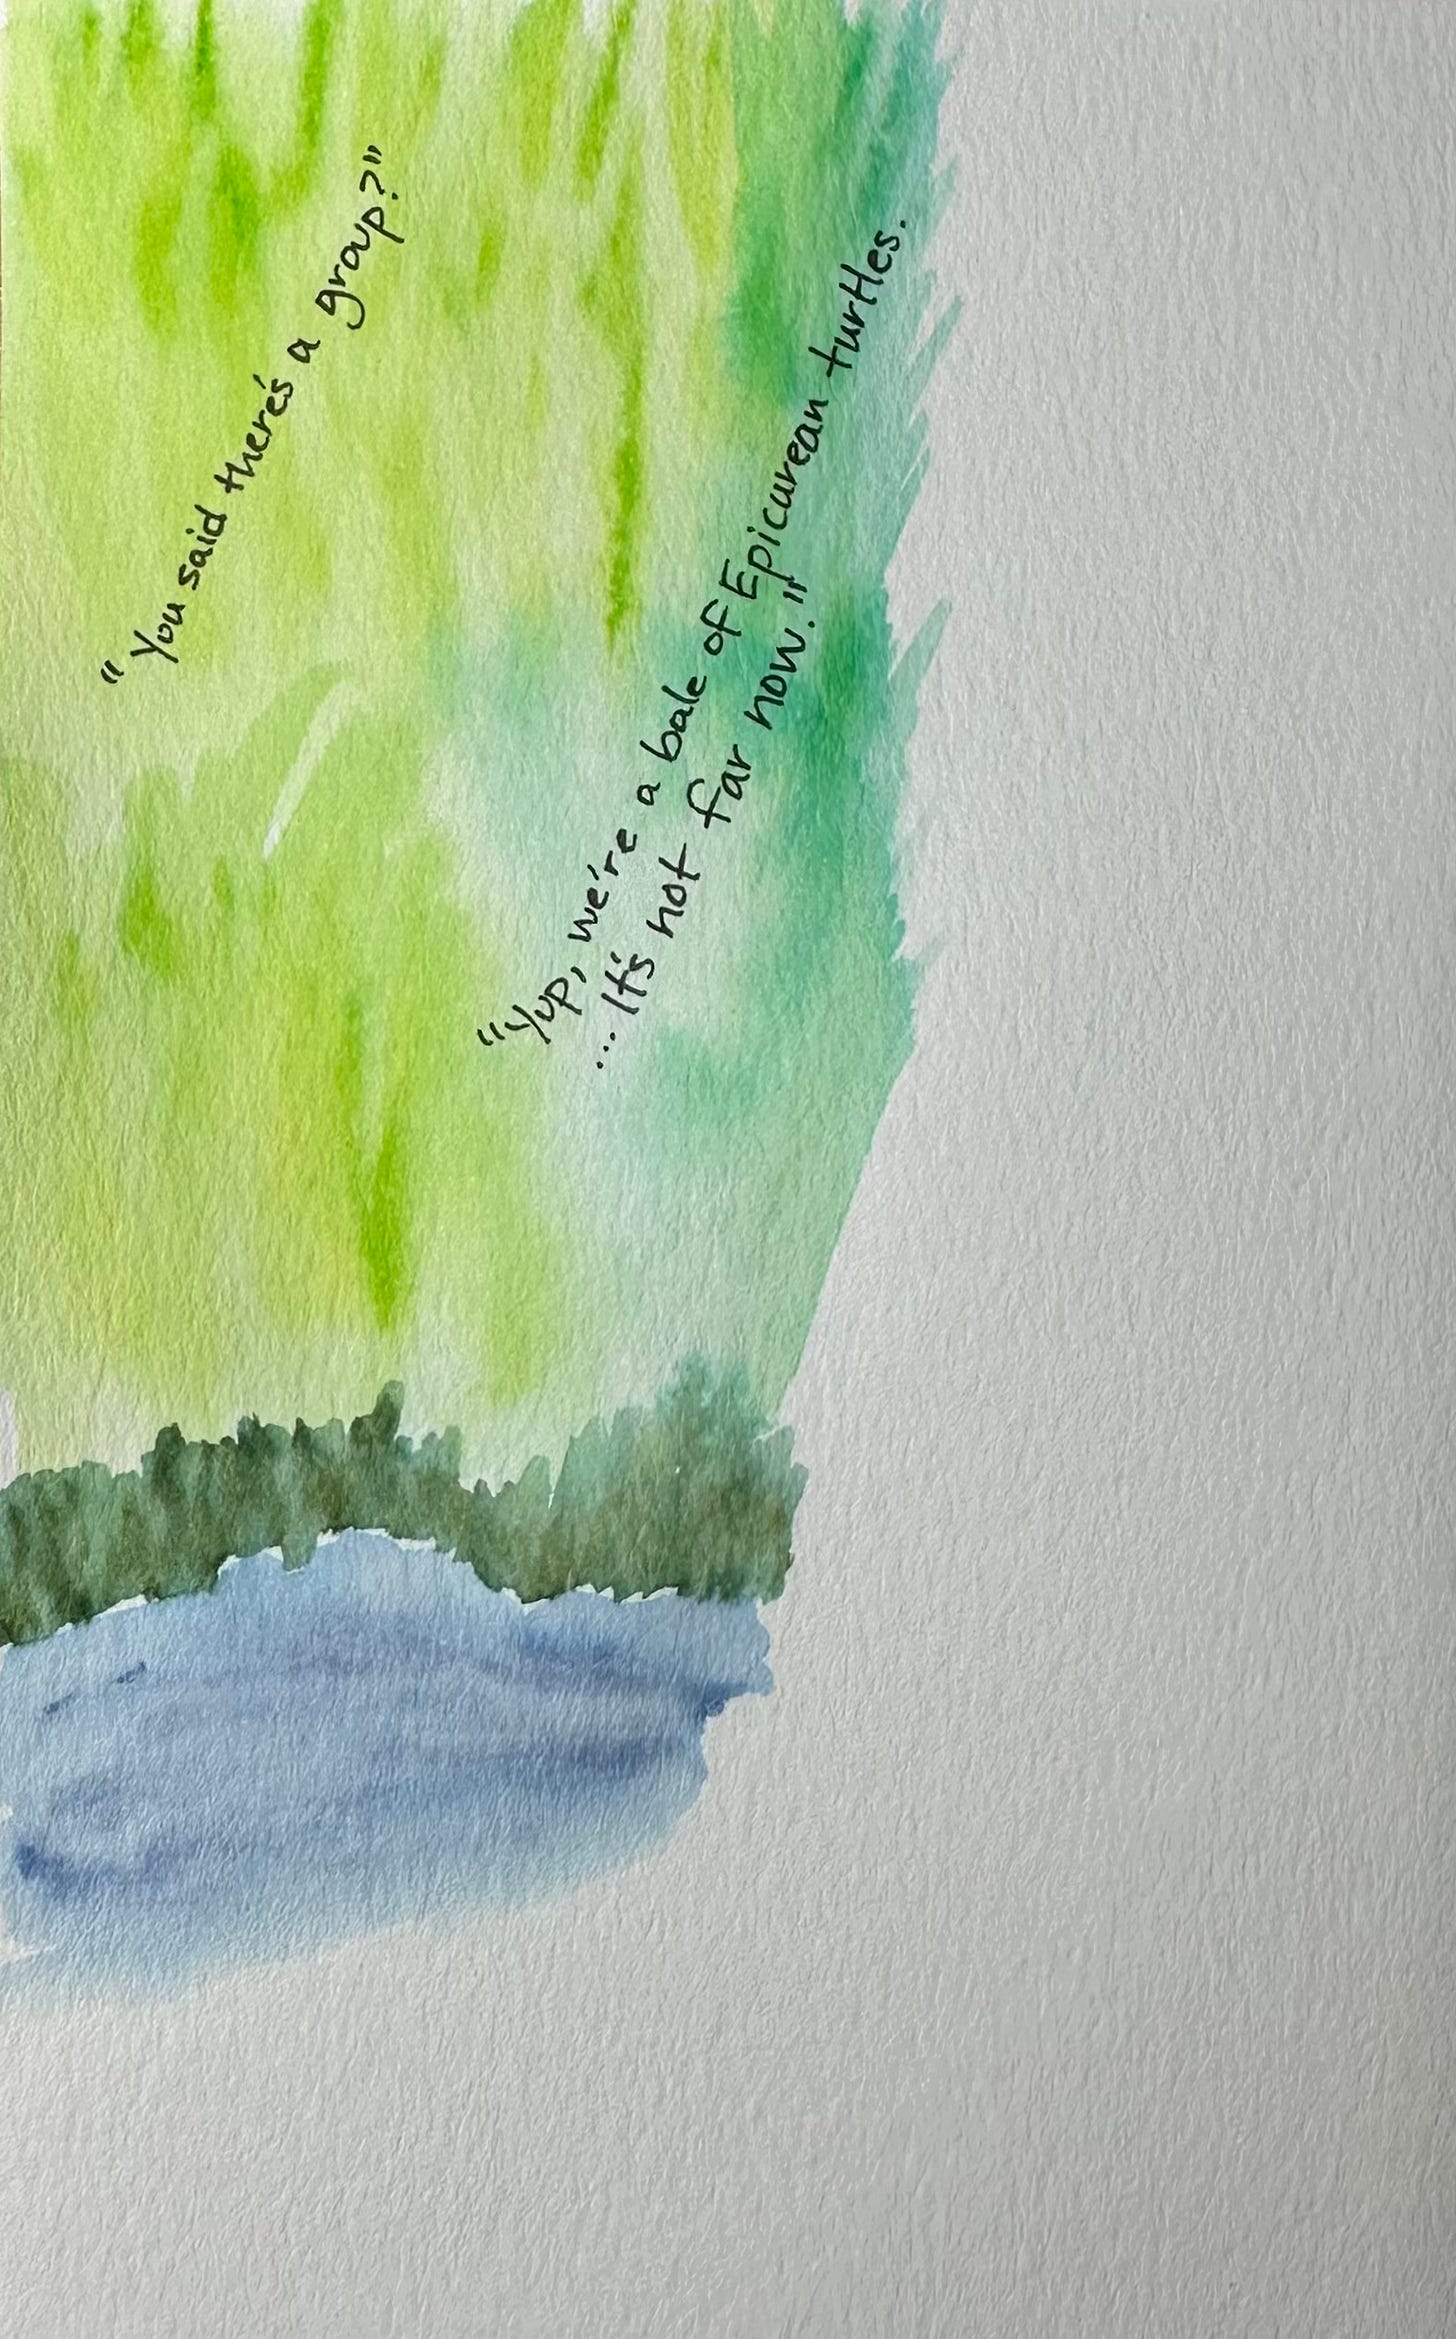 "You said there's a group?"
"Yup, we're a bale of Epicurean turtles.
...It's not far now."